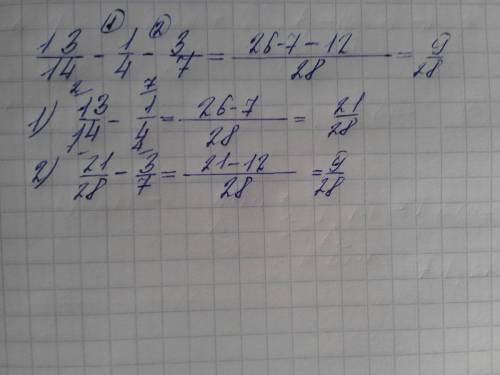 ① ②
13/14 - 1/4 - 3/7 = (26-7-12)/28 = 9/28
2 7
1) 13/14 - 1/4 = (26-7)/28 = 21/28
2) 21/28 - 3/7 = (21-12)/28 = 9/28